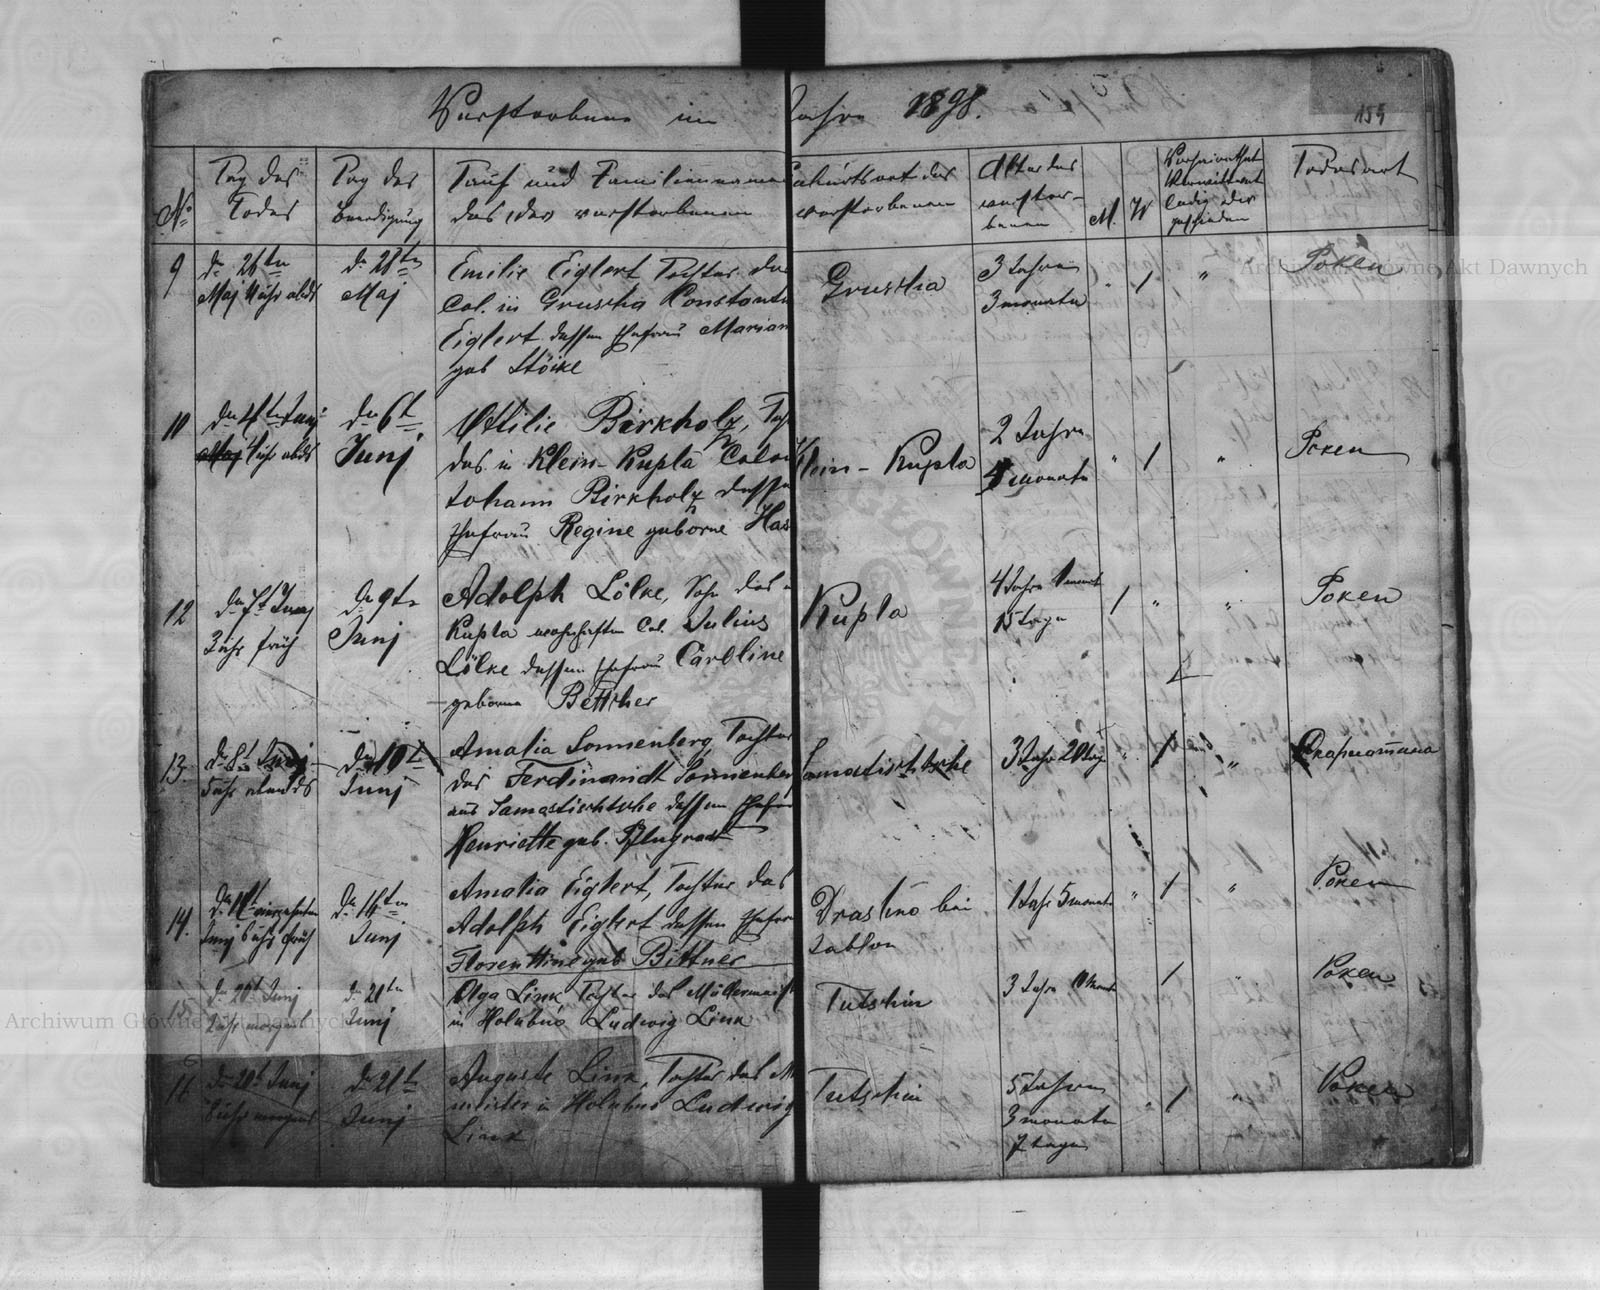 Verstorbene im Jahre 1898.
154
No
Tag des
Todes
Tag der
Beerdigung
Tauf und Familienname
des (der) verstorbenen
Geburtsort des
verstorbenen
Alter des
verstor-
benen
M.
W
Verheirathet
Verwittwet
ledig oder
geschieden
Todesart
9
d. 26ten
Maj 4 uhr abds
d. 28ten
Maj
Emilie Eiglert Tochter des
Col. in Gruscha Constantin
Eiglert dessen Ehefrau Marian
geb Stöike
Gruscha
3 Jahren
3 monate
" 1 "
Poken
10
den 4ten Junj
Maj 4 uhr abds
den 6t
Junj
Ottilie Birkholz, Toch
des in Klein-Kupla Colon
Johann Birkholz dessen
Ehefrau Regine geborne Has
Klein-Kupla
2 Jahre
4 monate
" 1 "
Poken
12
den 7t Junj
3 uhr früh
den 9ten
Junj
Adolph Lölke, Sohn des in
Kupla wohnhaften Col. Julius
Lölke dessen Ehefrau Caroline
geborne Bettcher
Kupla
4 Jahre 1 monat
15 Tage
1 " "
Poken
13.
den 8t Junj
7 uhr abends
den 10t
Junj
Amalia Sonnenberg, Tochter
des Ferdinandt Sonnenberg
aus Samastischtsche dessen Ehefrau
Henriette geb. Pflugradt
Samastischtsche
3 Jahr 20 Tag
" 1 "
14.
Junj 6 uhr früh
d. 16ten
Junj
Amalia Eiglert, Tochter des
Adolph Eiglert dessen Ehefrau
Florenttine geb Bittner
Draslino bei
Zablon
1 Jahr 5 monate
" 1 "
Poken
15
d. 20t Junj
2 uhr morgens
d. 21ten
Junj
Olga Link, Tochter des Möllermeist
in Holubno Ludwig Link
Tutschin
3 Jahre
1 "
Poken
16
den 20t Junj
8 uhr morgens
d. 21t
Junj
Auguste Link, Tochter des M
meister in Holubno Ludwig
Link
Tutschin
5 Jahren
3 monate
7 tagen
" 1 "
Poken
Archiwum Główne Akt Dawnych
Archiwum Główne Akt Dawnych